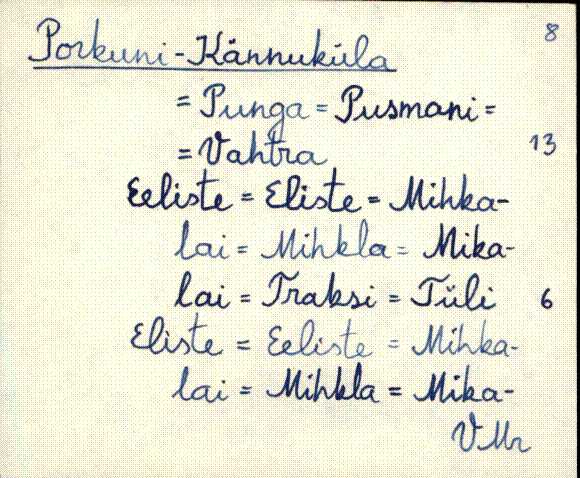 8
Porkuni-Kännuküla
= Punga = Pusmani =
= Vahtra 13
Eeliste = Eliste = Mihka-
lai = Mihkla = Mika-
lai = Traksi = Tüli 6
Eliste = Eeliste = Mihka-
lai = Mihkla = Mika-
VMr